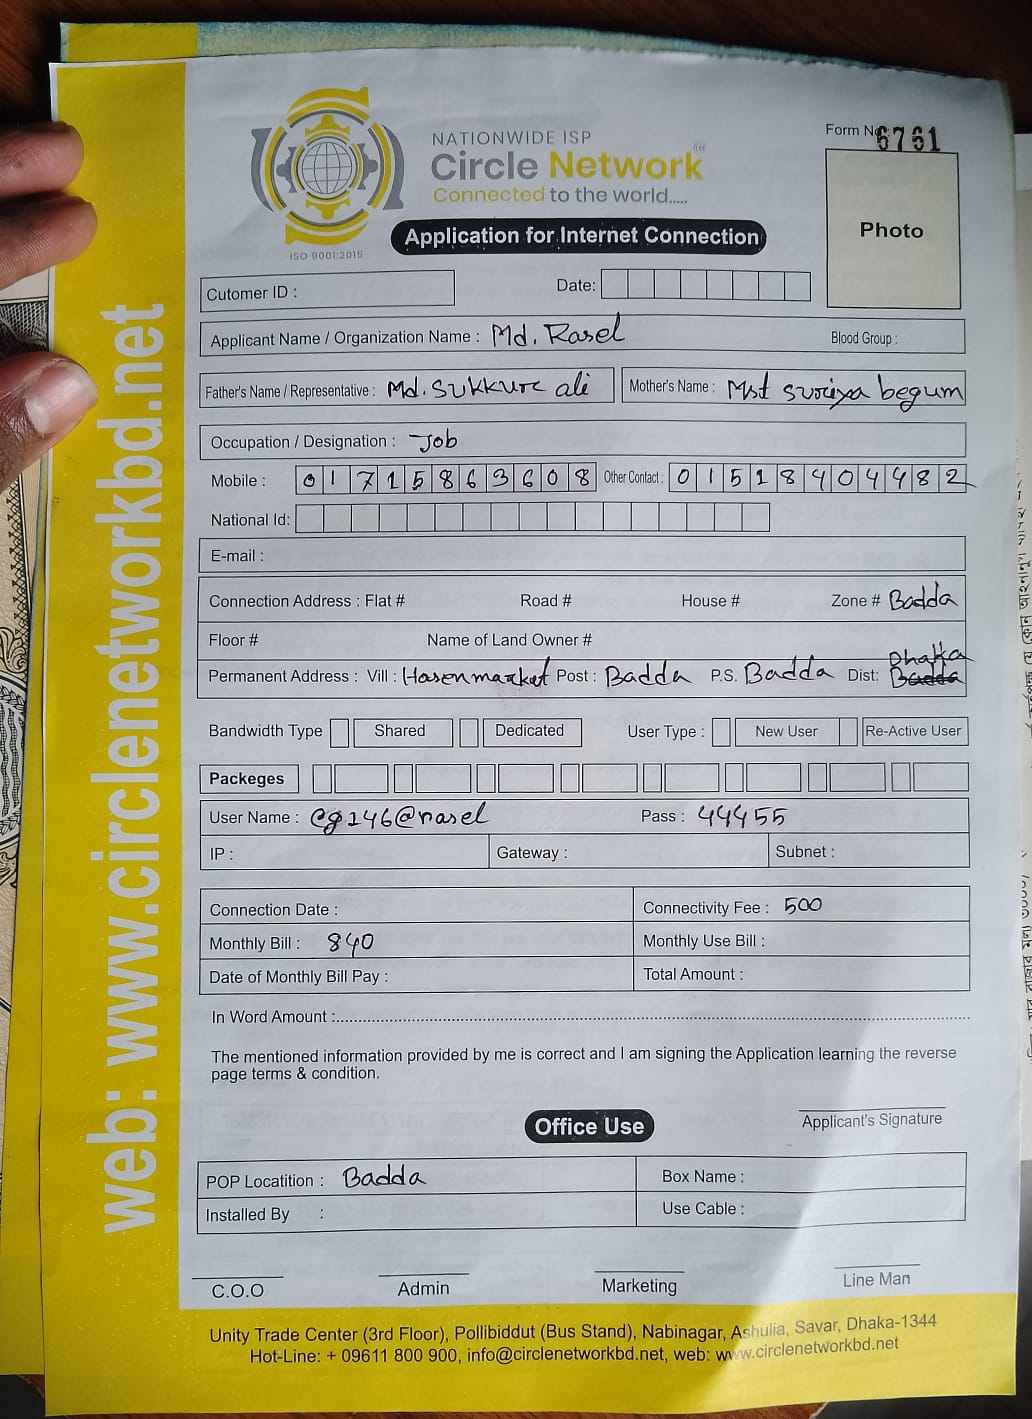 NATIONWIDE ISP
Circle Network
Connected to the world.....
ISO 9001:2015
Form No: 6761
Photo
Application for Internet Connection
Cutomer ID :
Date:
Applicant Name / Organization Name : Md. Rasel Blood Group :
Father's Name / Representative : Md. Sukkur ali Mother's Name : Mst suriya begum
Occupation / Designation : Job
Mobile : 01715863608 Other Contact : 01518404482
National Id:
E-mail :
Connection Address : Flat # Road # House # Zone # Badda
Floor # Name of Land Owner #
Permanent Address : Vill : Hosenmarket Post : Badda P.S. Badda Dist: Dhaka
Bandwidth Type Shared Dedicated User Type : New User Re-Active User
Packeges
User Name : cg146@rasel Pass : 44455
IP : Gateway : Subnet :
Connection Date : Connectivity Fee : 500
Monthly Bill : 840 Monthly Use Bill :
Date of Monthly Bill Pay : Total Amount :
In Word Amount :
The mentioned information provided by me is correct and I am signing the Application learning the reverse
page terms & condition.
Applicant's Signature
Office Use
POP Locatition : Badda Box Name :
Installed By : Use Cable :
C.O.O Admin Marketing Line Man
Unity Trade Center (3rd Floor), Pollibiddut (Bus Stand), Nabinagar, Ashulia, Savar, Dhaka-1344
Hot-Line: + 09611 800 900, info@circlenetworkbd.net, web: www.circlenetworkbd.net
web: www.circlenetworkbd.net